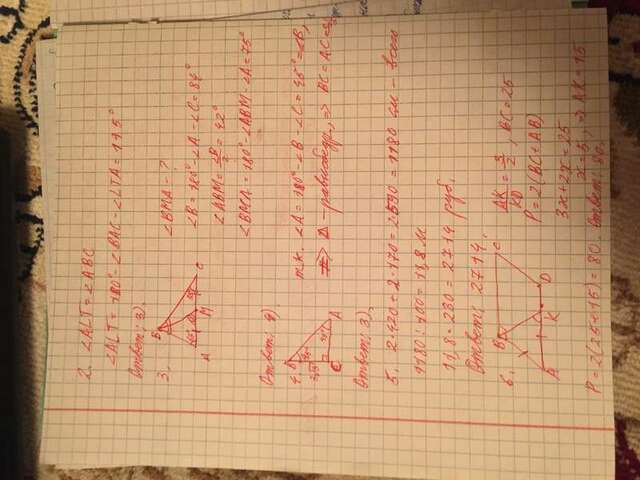 2. ∠ALT = ∠ABC
∠ALT = 180° - ∠BAC - ∠LTA = 115°
Ответ: 3).
3.
B
A M C
∠BMA - ?
∠B = 180° - ∠A - ∠C = 84°
∠ABM = ∠B/2 = 42°
∠BMA = 180° - ∠ABM - ∠A = 75°
Ответ: 4).
4.
B
45°
C A
т.к. ∠A = 180° - ∠B - ∠C = 45° = ∠B,
=> Δ - равнобедр., => BC = AC =
Ответ: 3).
5. 2·420 + 2·170 = 2·590 = 1180 см - всего
1180 : 100 = 11,8 м
11,8 · 230 = 2714 руб.
Ответ: 2714.
6.
B C
A K D
AK/KD = 3/2, BC = 25
P = 2(BC + AB)
3x + 2x = 25
x = 5, => AK = 15
P = 2(25 + 15) = 80. Ответ: 80.